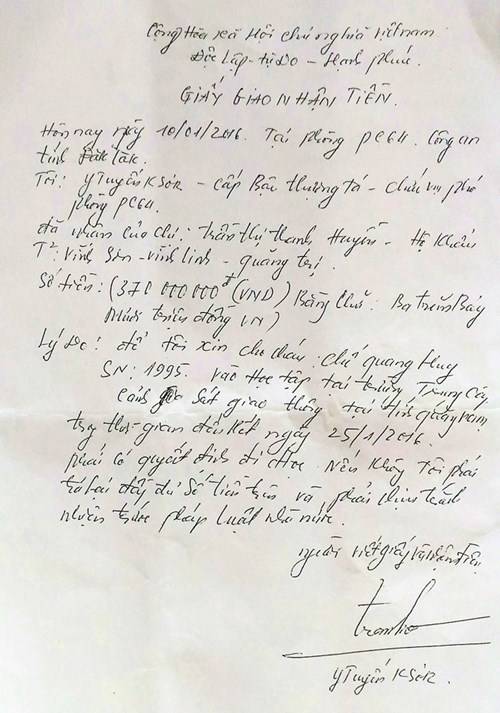 Cộng Hòa xã Hội chủ nghĩa Việt nam
Độc Lập - tự Do - Hạnh phúc.
GIẤY GIAO NHẬN TIỀN.
Hôm nay ngày 10/01/2016. Tại phòng PC64. Công an
tỉnh Đăk Lăk.
Tôi: Y Tuyến KSơR - cấp Bậc thượng tá - chức vụ phó
phòng PC64.
đã nhận của chị: trần thị thanh Huyền - Hộ Khẩu
T²: vĩnh Sơn - vĩnh linh - quảng trị.
Số tiền: (370 000 000đ (VND) Bằng chữ: Ba trăm Bảy
Mươi triệu đồng VN)
Lý Do: để tôi xin cho cháu: chế quang Huy
SN: 1995 vào Học tập tại trường Trung Cấp
Cảnh Sát giao thông tại tỉnh quảng nam
thời gian đến hết ngày 25/1/2016.
phải có quyết định đi Học. Nếu không tôi phải
trả lại đầy đủ số tiền trên và phải chịu trách
nhiệm trước pháp luật nhà nước.
người viết giấy và nhận tiền
Y Tuyến KSơR.